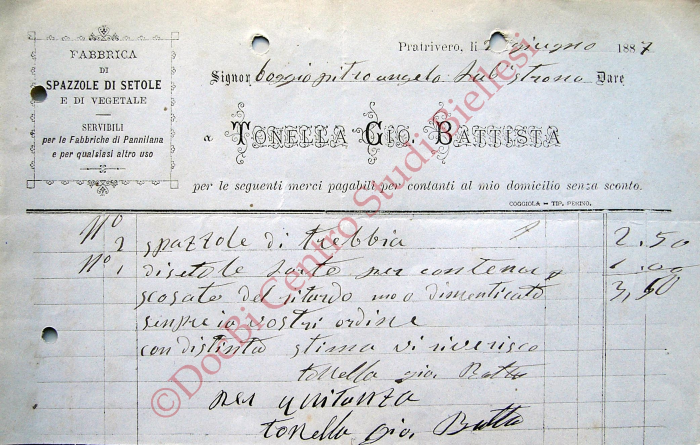 FABBRICA
DI
SPAZZOLE DI SETOLE
E DI VEGETALE
SERVIBILI
per le Fabbriche di Pannilana
e per qualsiasi altro uso
Pratrivero, li 2 giugno 1887
Signor boggio pitro angelo Dare
a TONELLA GIO. BATTISTA
per le seguenti merci pagabili per contanti al mio domicilio senza sconto.
COGGIOLA - TIP. PERINO.
No 2 spazzole di trebbia 2.50
No 1 di setole per 1.00
del ritardo dimenticato 3,50
ordine
con distinta stima vi riverisco
tonella gio. Batta
per quitanza
tonella gio. Batta
©DocBi Centro Studi Biellesi